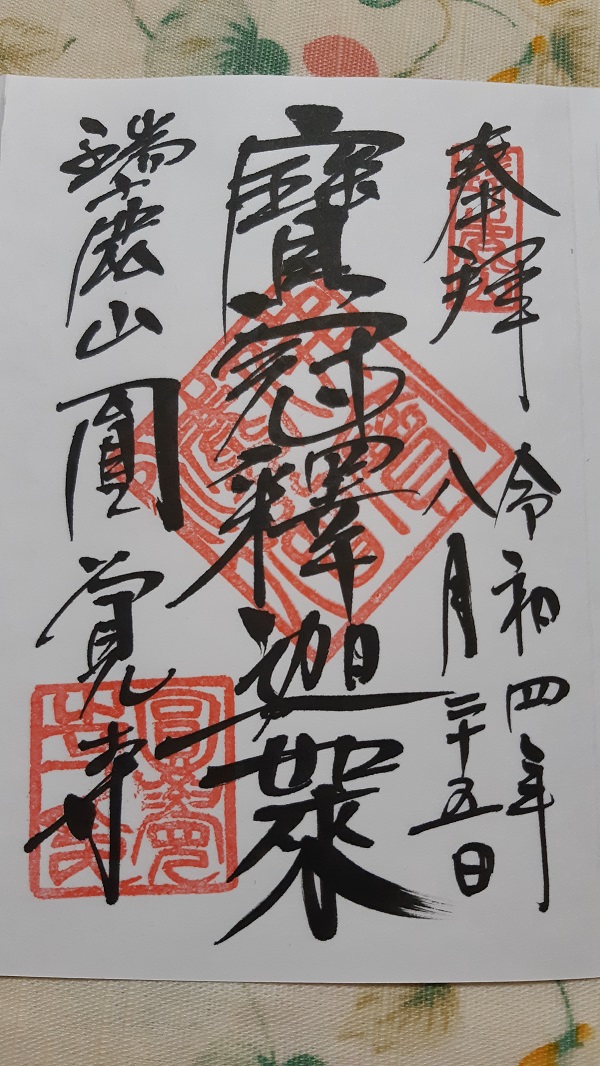 奉拜
令和四年
八月二十五日
寶冠釋迦如來
瑞鹿山
圓覚寺